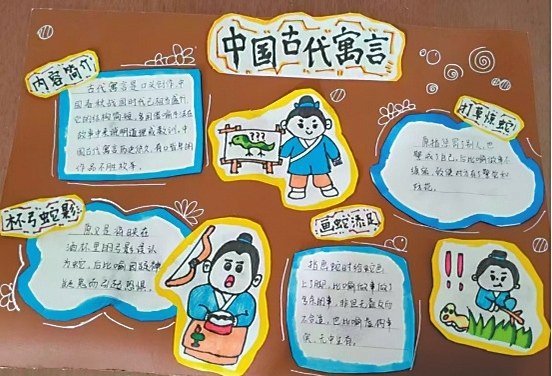 中国古代寓言
内容简介
古代寓言是口头创作,中
国春秋战国时代已经为盛行,
它的结构简短,多用借喻手法在
故事中来说明道理或教训,中
国古代寓言历史悠久,有口皆碑的
作品不胜枚举。
打草惊蛇
原指惩罚了别人,也
警戒了自己,后比喻做事不
缜密,致使对方有了警觉和
杯弓蛇影
原文是将映在
酒杯里的弓影误认
为蛇,后比喻因疑神
疑鬼而引起恐惧。
画蛇添足
???
指画蛇时给蛇画
上了脚,比喻做事做了
多余的事,非但无益反而
不合适,也比喻虚构事
实,无中生有。
!!